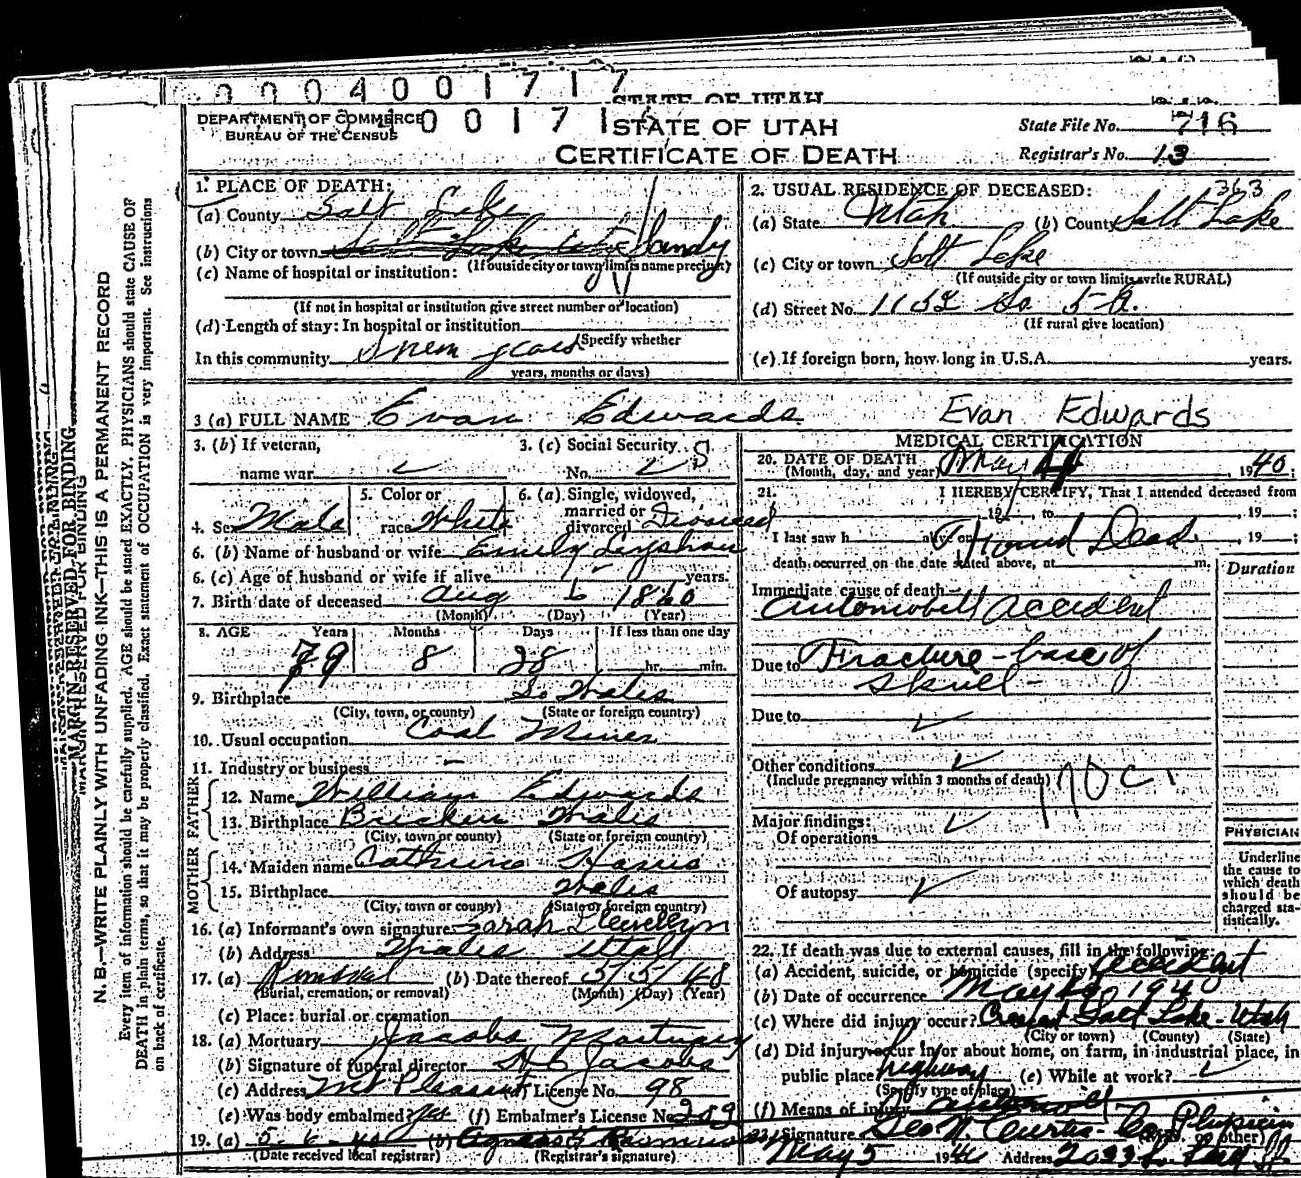 0004001717
STATE OF UTAH
DEPARTMENT OF COMMERCE
BUREAU OF THE CENSUS
001716
STATE OF UTAH
CERTIFICATE OF DEATH
State File No. 716
Registrar's No. 13
MARGIN RESERVED FOR BINDING
N. B.—WRITE PLAINLY WITH UNFADING INK—THIS IS A PERMANENT RECORD
Every item of information should be carefully supplied. AGE should be stated EXACTLY. PHYSICIANS should state CAUSE OF
DEATH in plain terms, so that it may be properly classified. Exact statement of OCCUPATION is very important. See instructions
on back of certificate.
1. PLACE OF DEATH:
(a) County Salt Lake
(b) City or town Salt Lake City Sandy
(If outside city or town limits name precinct)
(c) Name of hospital or institution:
(If not in hospital or institution give street number or location)
(d) Length of stay: In hospital or institution
(Specify whether
In this community years
years, months or days)
2. USUAL RESIDENCE OF DECEASED: 363
(a) State Utah (b) County Salt Lake
(c) City or town Salt Lake
(If outside city or town limits write RURAL)
(d) Street No. 1152 So 5 E.
(If rural give location)
(e) If foreign born, how long in U.S.A. years.
3 (a) FULL NAME Evan Edwards Evan Edwards
3. (b) If veteran,
name war
3. (c) Social Security
No.
4. Sex Male
5. Color or
race White
6. (a) Single, widowed,
married or
divorced Divorced
6. (b) Name of husband or wife Emily
6. (c) Age of husband or wife if alive years.
7. Birth date of deceased Aug 6 1860
(Month) (Day) (Year)
8. AGE Years Months Days If less than one day
79 8 28 hr. min.
9. Birthplace So Wales
(City, town, or county) (State or foreign country)
10. Usual occupation Coal Miner
11. Industry or business -
FATHER
12. Name William Edwards
13. Birthplace Wales
(City, town or county) (State or foreign country)
MOTHER
14. Maiden name Catherine
15. Birthplace Wales
(City, town or county) (State or foreign country)
16. (a) Informant's own signature Sarah Llewellyn
(b) Address Wales Utah
17. (a) Removal (b) Date thereof 5/5/40
(Burial, cremation, or removal) (Month) (Day) (Year)
(c) Place: burial or cremation
18. (a) Mortuary Jacobs Mortuary
(b) Signature of funeral director Jacobs
(c) Address Mt Pleasant (d) License No. 98
(e) Was body embalmed? Yes (f) Embalmer's License No. 289
19. (a) 5-6-40 (b) Rasmussen
(Date received local registrar) (Registrar's signature)
MEDICAL CERTIFICATION
20. DATE OF DEATH
(Month, day, and year) May 4, 1940;
21. I HEREBY CERTIFY, That I attended deceased from
, 19 , to , 19 ;
I last saw h alive on Found Dead , 19 ;
death occurred on the date stated above, at m.
Duration
Immediate cause of death
Automobile accident
Due to Fracture - base of
Skull -
Due to
Other conditions
(Include pregnancy within 3 months of death)
170c.
Major findings:
Of operations
Of autopsy
PHYSICIAN
Underline
the cause to
which death
should be
charged sta-
tistically.
22. If death was due to external causes, fill in the following:
(a) Accident, suicide, or homicide (specify) Accident
(b) Date of occurrence May 4 1940
(c) Where did injury occur? Crescent Salt Lake - Utah
(City or town) (County) (State)
(d) Did injury occur in or about home, on farm, in industrial place, in
public place highway (e) While at work?
(Specify type of place)
(f) Means of injury
23. Signature Geo N. Curtis - Co Physician
May 5 1940 Address